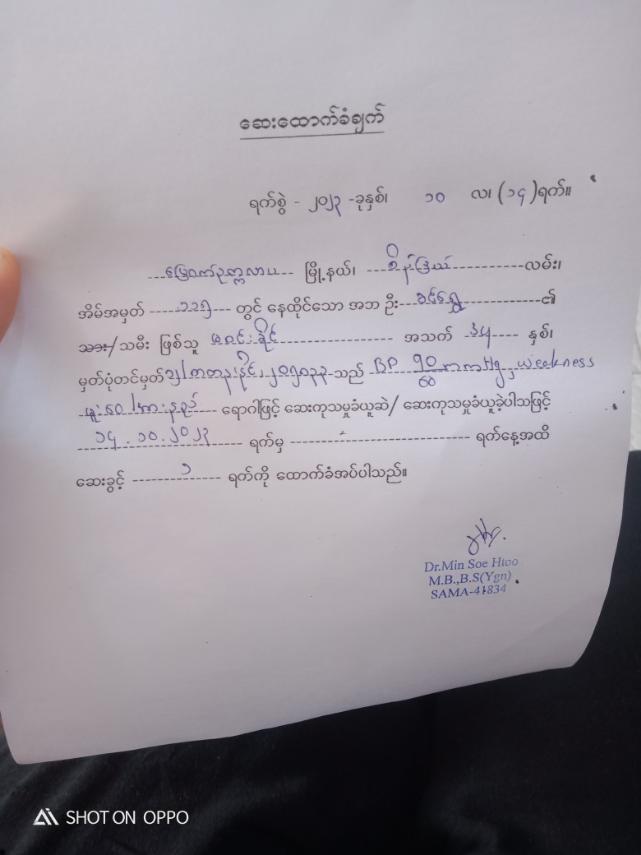 ဆေးထောက်ခံချက်
ရက်စွဲ - ၂၀၂၃ -ခုနှစ်၊ ၁၀ လ၊ (၁၄)ရက်။
မြောက်ဥက္ကလာပ မြို့နယ်၊ လမ်း၊
အိမ်အမှတ် တွင် နေထိုင်သော အဘ ဦး ခင်ရွှေ ၏
သား/သမီး ဖြစ်သူ အသက် နှစ်၊
မှတ်ပုံတင်မှတ် သည် BP 90/60 mmHg, weakness
ရောဂါဖြင့် ဆေးကုသမှုခံယူဆဲ/ ဆေးကုသမှုခံယူခဲ့ပါသဖြင့်
၁၄.၁၀.၂၀၂၃ ရက်မှ - ရက်နေ့အထိ
ဆေးခွင့် ၁ ရက်ကို ထောက်ခံအပ်ပါသည်။
Dr.Min Soe Htoo
M.B.,B.S(Ygn)
SAMA-41834
SHOT ON OPPO